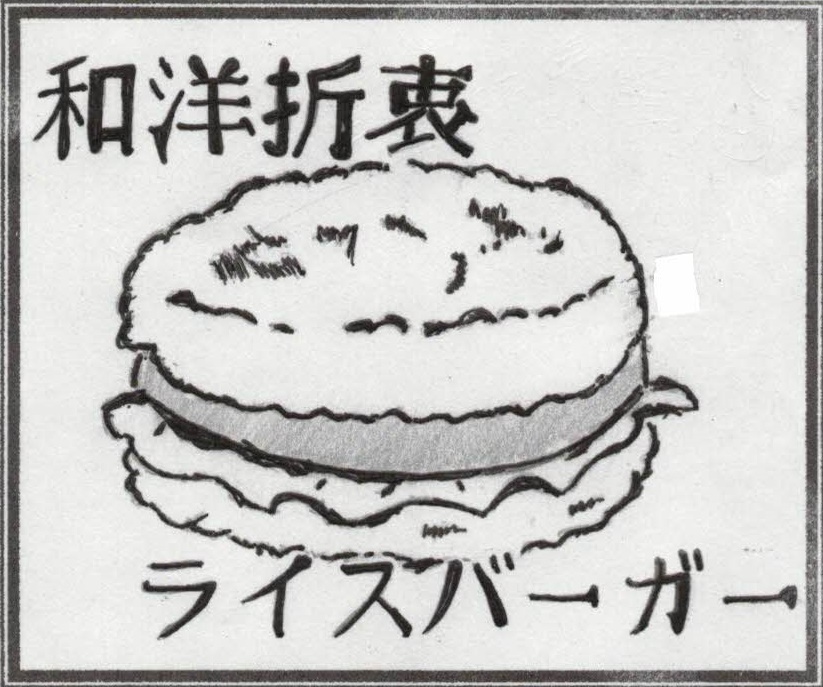 和洋折衷
ライスバーガー